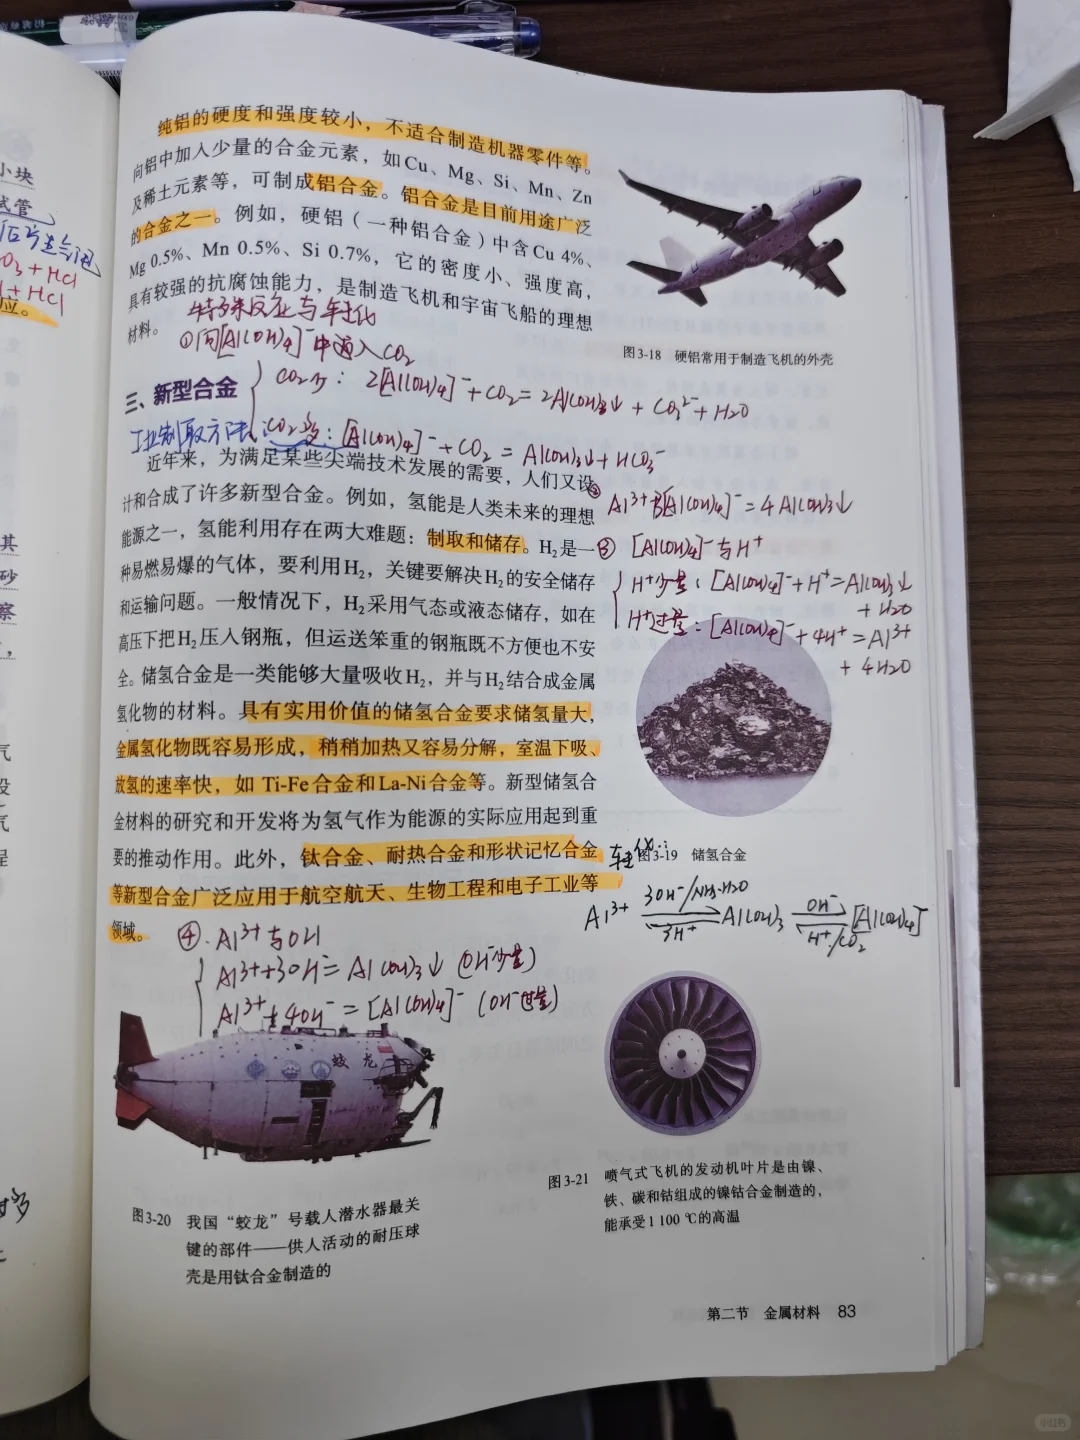 小块
试管
O₃+HCl
l+HCl
应。
其
砂
察
气
没
气
程
纯铝的硬度和强度较小，不适合制造机器零件等。
向铝中加入少量的合金元素，如Cu、Mg、Si、Mn、Zn
及稀土元素等，可制成铝合金。铝合金是目前用途广泛
的合金之一。例如，硬铝（一种铝合金）中含Cu 4%、
Mg 0.5%、Mn 0.5%、Si 0.7%，它的密度小、强度高，
具有较强的抗腐蚀能力，是制造飞机和宇宙飞船的理想
材料。
图3-18 硬铝常用于制造飞机的外壳
特殊反应与转化
①向[Al(OH)₄]⁻中通入CO₂
CO₂少：2[Al(OH)₄]⁻+CO₂=2Al(OH)₃↓+CO₃²⁻+H₂O
三、新型合金
工业制取方法：CO₂多：[Al(OH)₄]⁻+CO₂=Al(OH)₃↓+HCO₃⁻
近年来，为满足某些尖端技术发展的需要，人们又设
计和合成了许多新型合金。例如，氢能是人类未来的理想
能源之一，氢能利用存在两大难题：制取和储存。H₂是一
种易燃易爆的气体，要利用H₂，关键要解决H₂的安全储存
和运输问题。一般情况下，H₂采用气态或液态储存，如在
高压下把H₂压入钢瓶，但运送笨重的钢瓶既不方便也不安
全。储氢合金是一类能够大量吸收H₂，并与H₂结合成金属
氢化物的材料。具有实用价值的储氢合金要求储氢量大，
金属氢化物既容易形成，稍稍加热又容易分解，室温下吸、
放氢的速率快，如 Ti-Fe合金和La-Ni合金等。新型储氢合
金材料的研究和开发将为氢气作为能源的实际应用起到重
要的推动作用。此外，钛合金、耐热合金和形状记忆合金
等新型合金广泛应用于航空航天、生物工程和电子工业等
领域。
② Al³⁺与[Al(OH)₄]⁻=4Al(OH)₃↓
③ [Al(OH)₄]⁻与H⁺
H⁺少量：[Al(OH)₄]⁻+H⁺=Al(OH)₃↓
+H₂O
H⁺过量：[Al(OH)₄]⁻+4H⁺=Al³⁺
+4H₂O
图3-19 储氢合金
转化：
Al³⁺ 3OH⁻/NH₃·H₂O 3H⁺ Al(OH)₃ OH⁻ H⁺/CO₂ [Al(OH)₄]⁻
④.Al³⁺与OH
Al³⁺+3OH⁻=Al(OH)₃↓(OH⁻少量)
Al³⁺+4OH⁻=[Al(OH)₄]⁻(OH⁻过量)
蛟龙
图3-20 我国“蛟龙”号载人潜水器最关
键的部件——供人活动的耐压球
壳是用钛合金制造的
图3-21 喷气式飞机的发动机叶片是由镍、
铁、碳和钴组成的镍钴合金制造的，
能承受1 100 ℃的高温
第二节 金属材料 83
小红书